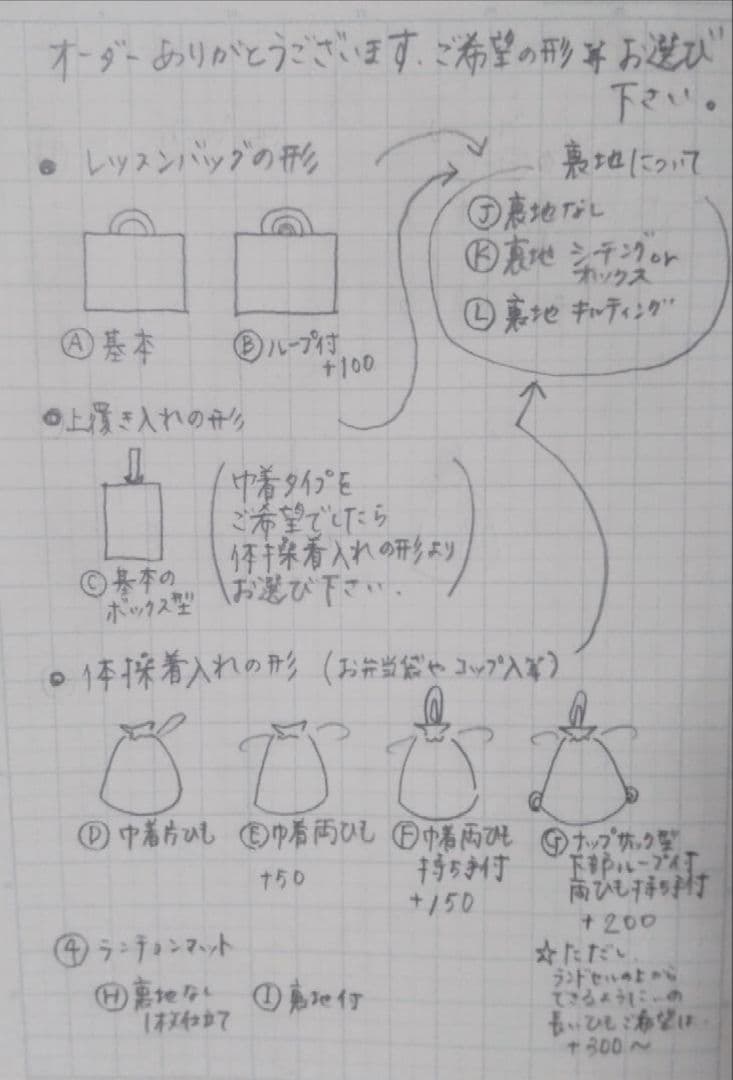 オーダーありがとうございます。ご希望の形等お選び
下さい。
● レッスンバッグの形
Ⓐ基本
Ⓑループ付
+100
裏地について
Ⓙ裏地なし
Ⓚ裏地 シーチングor
オックス
Ⓛ裏地 キルティング
●上履き入れの形
Ⓒ基本の
ボックス型
(巾着タイプを
ご希望でしたら
体操着入れの形より
お選び下さい.)
● 体操着入れの形 (お弁当袋やコップ入等)
Ⓓ巾着片ひも
Ⓔ巾着両ひも
+50
Ⓕ巾着両ひも
持ち手付
+150
Ⓖナップサック型
下部ループ付
両ひも持ち手付
+200
☆ただし
ランドセルの上から
できるように
長いひもご希望は
+300〜
④ランチョンマット
Ⓗ裏地なし
1枚仕立て
Ⓘ裏地付